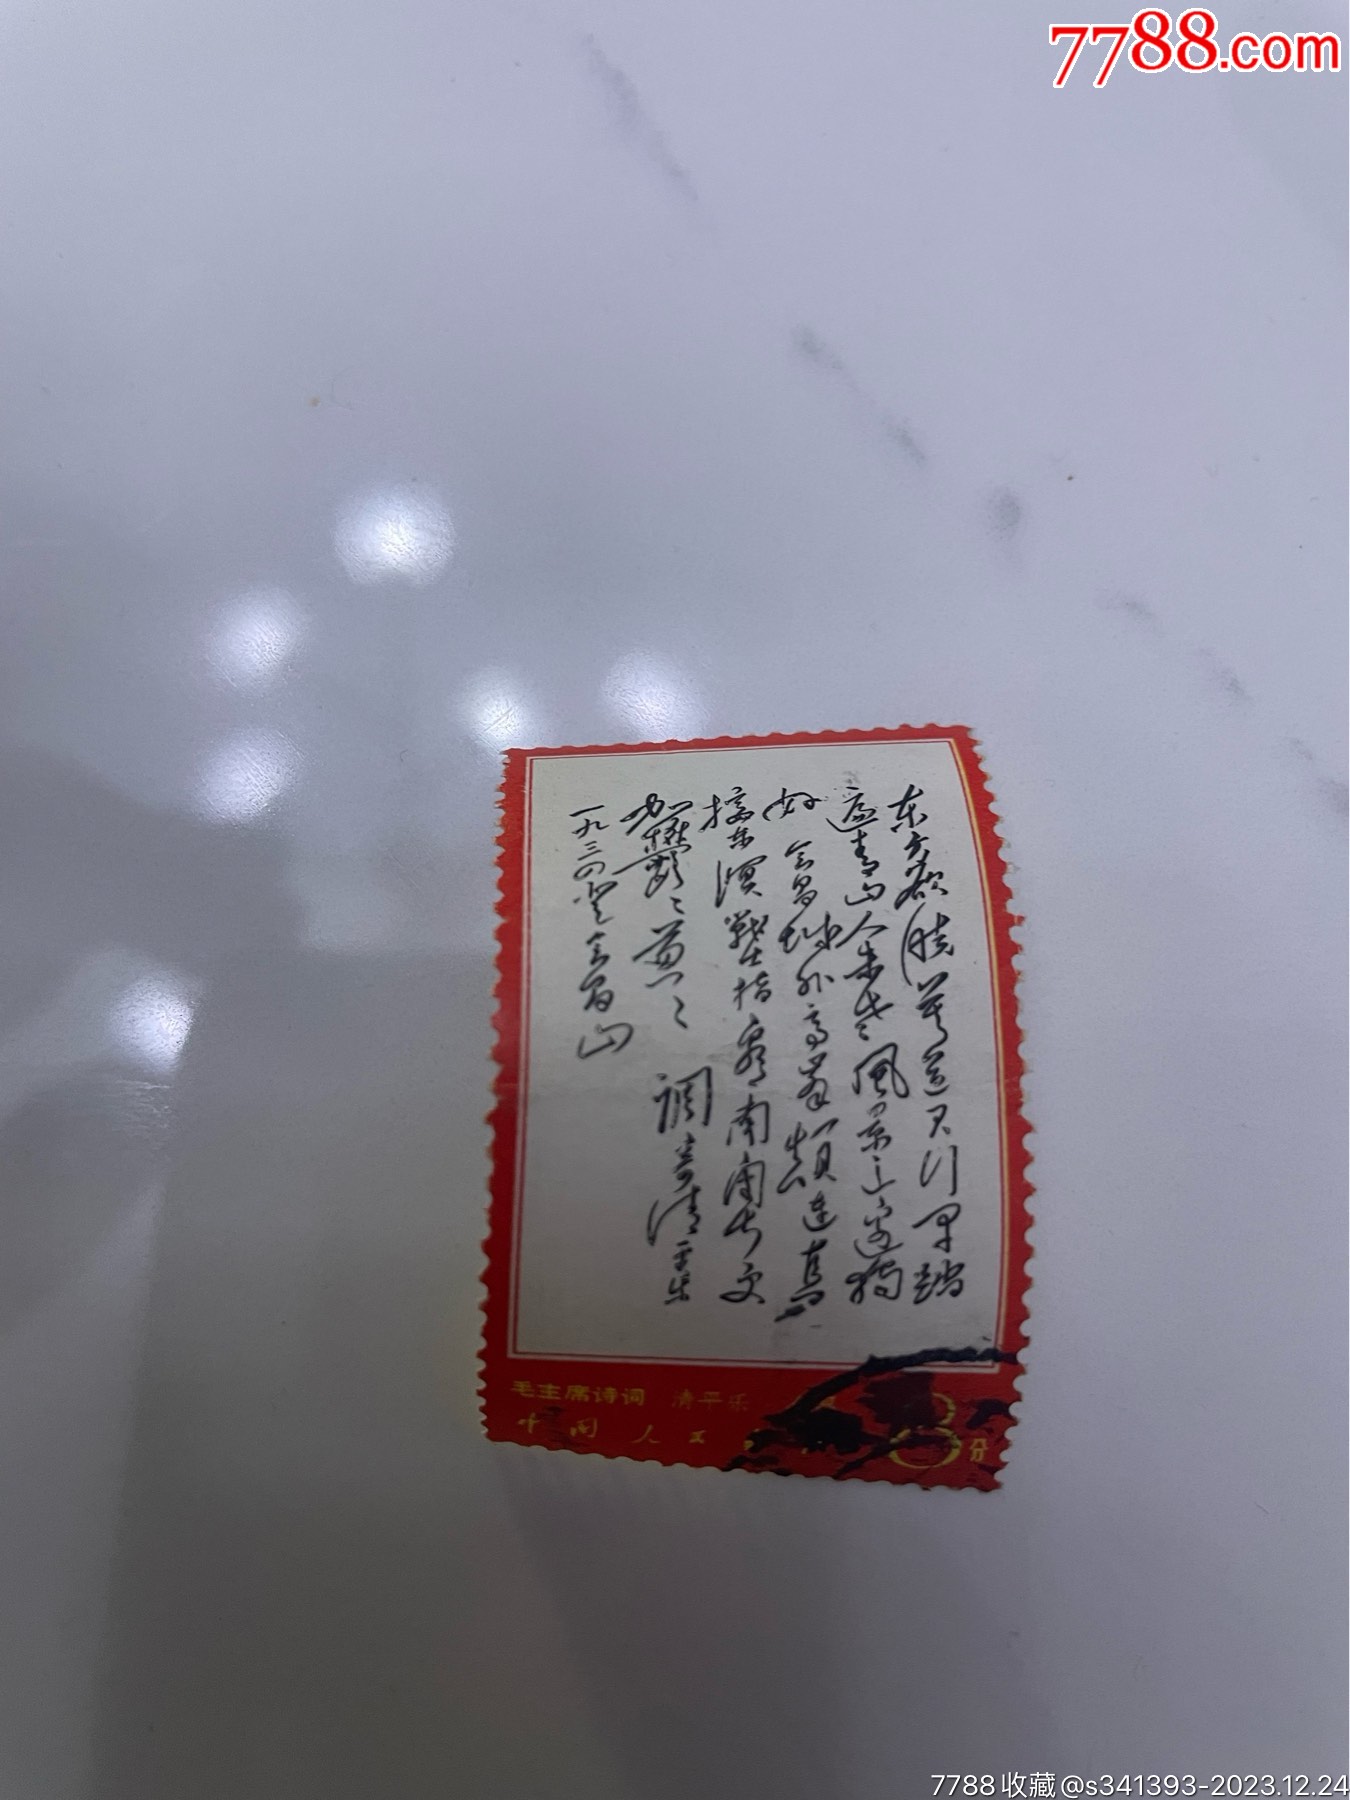 7788.com
东方欲晓莫道君行早踏
遍青山人未老風景这边独
好会昌城外高峯颠连直
接东溟戰士指看南粤更
加鬱鬱葱葱 调寄清平乐
一九三四登会昌山
毛主席诗词 清平乐
中国人 8分
7788收藏@s341393-2023.12.24